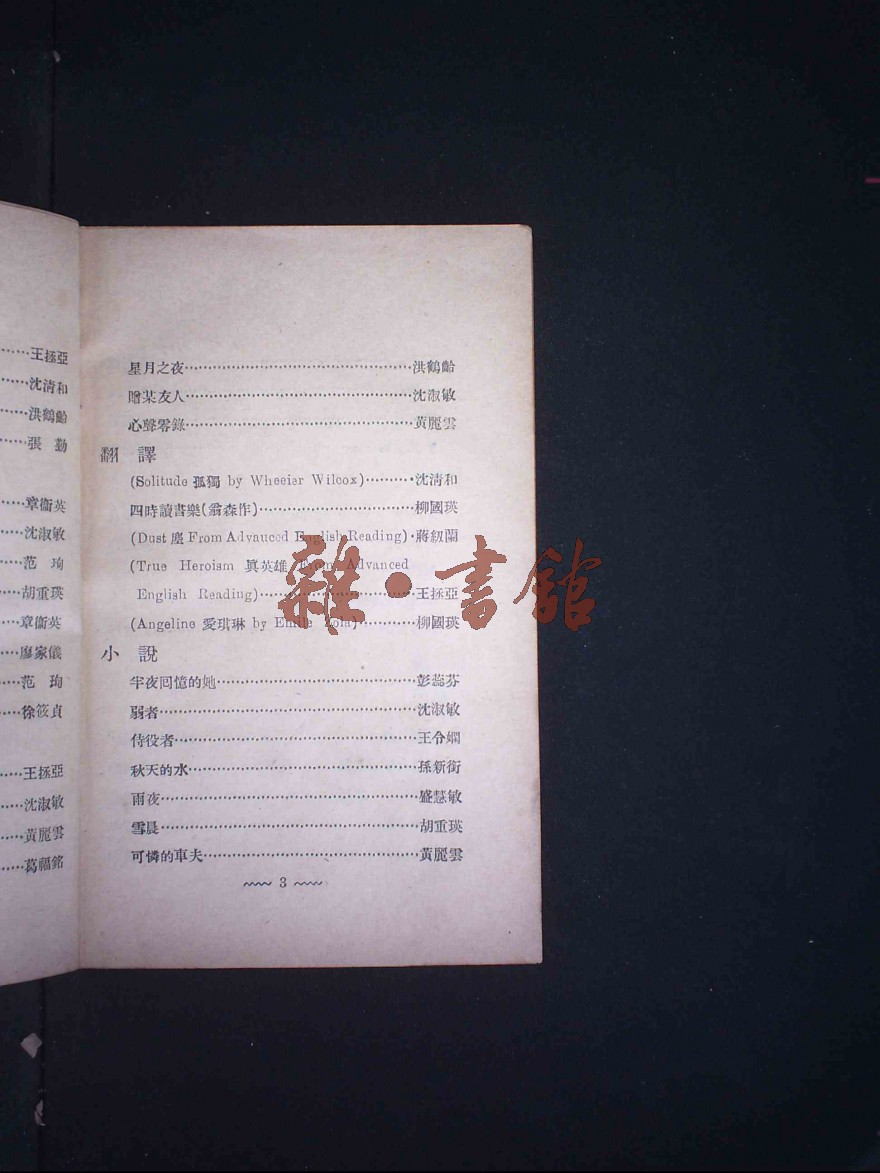 ……王拯亞
……沈淸和
……洪鶴齡
……張 勤
……章衞英
……沈淑敏
……范 珣
……胡重瑛
……章衞英
……廖家儀
……范 珣
……徐筱貞
……王拯亞
……沈淑敏
……黃麗雲
……葛福銘
星月之夜……洪鶴齡
贈某友人……沈淑敏
心聲零錄……黃麗雲
翻 譯
(Solitude 孤獨 by Wheeier Wilcox)……沈淸和
四時讀書樂(翁森作)……柳國瑛
(Dust 塵 From Advauced English Reading)·蔣紉蘭
(True Heroism 眞英雄 From Advanced
English Reading)……王拯亞
(Angeline 愛琪琳 by Emile Zola)……柳國瑛
小 說
半夜回憶的她……彭蕊芬
弱者……沈淑敏
侍役者……王令嫻
秋天的水……孫新銜
雨夜……盛慧敏
雪晨……胡重瑛
可憐的車夫……黃麗雲
3
雜·書館